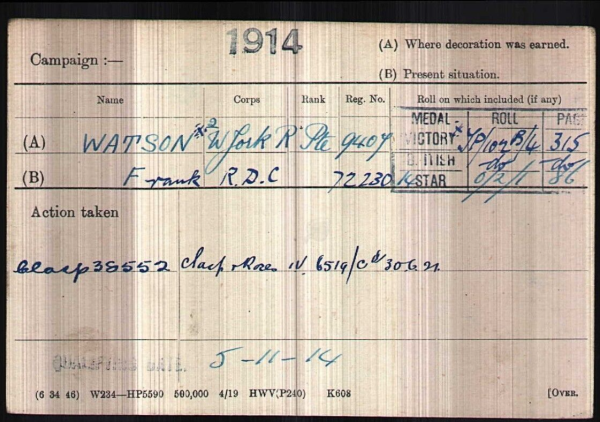 1914
Campaign :—
(A) Where decoration was earned.
(B) Present situation.
Name Corps Rank Reg. No. Roll on which included (if any)
MEDAL ROLL PAGE
(A) WATSON 2 W York R Pte 9407 VICTORY 315
BRITISH do do
(B) Frank R.D.C 72230 14 STAR 86
Action taken
Clasp 38552 Clasp & Roses IV. 6519/C d/ 30.6.21.
5-11-14
(6 34 46) W234—HP5590 500,000 4/19 HWV(P240) K608 [OVER.